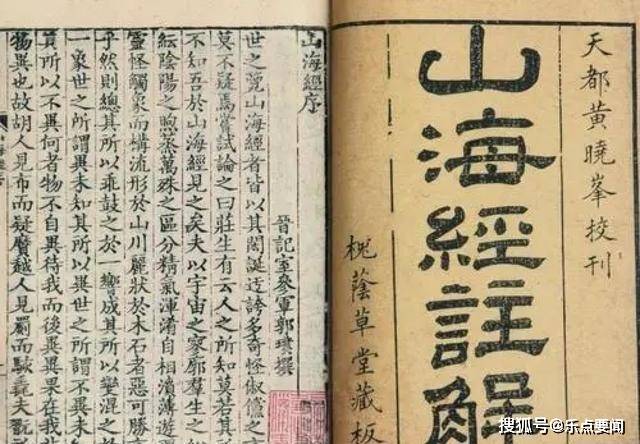 天都黃曉峯校刊
山海經註解
槐蔭草堂藏板
山海經序
晉記室參軍郭璞撰
世之覽山海經者皆以其閎誕迂誇多奇怪俶儻之言
莫不疑焉嘗試論之曰莊生有云人之所知莫若其所
不知吾於山海經見之矣夫以宇宙之寥廓羣生之
紜陰陽之煦蒸萬殊之區分精氣渾淆自相濆薄遊
靈怪觸象而構流形於山川麗狀於木石者惡可勝言
乎然則總其所以乖鼓之於一響成其所以變混之於
一象世之所謂異未知其所以異世之所謂不異未知
其所以不異何者物不自異待我而後異異果在我非
物異也故胡人見布而疑黂越人見罽而駭毳夫翫所
搜狐号@乐点要闻